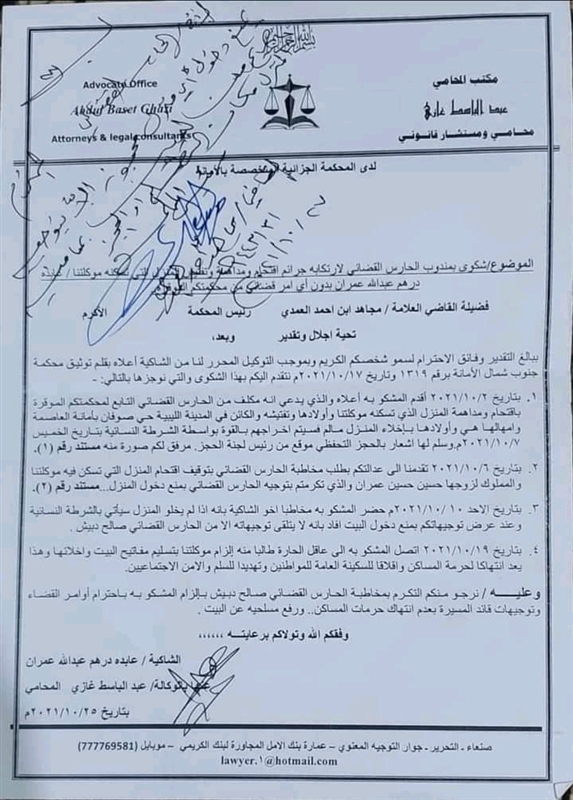 بسم الله الرحمن الرحيم
Advocate Office
Abdul Baset Ghazi
Attorneys & legal consultants
مكتب المحامي
عبد الباسط غازي
محامي ومستشار قانوني
لدى المحكمة الجزائية المتخصصة بالأمانة
الموضوع/شكوى بمندوب الحارس القضائي لارتكابه جرائم اقتحام ومداهمة وتفتيش المنزل التي تسكنه موكلتنا / عابده
درهم عبدالله عمران بدون أي امر قضائي من محكمتكم الموقرة
فضيلة القاضي العلامة / مجاهد ابن احمد العمدي رئيس المحكمة الأكرم
تحية اجلال وتقدير وبعد،
ببالغ التقدير وفائق الاحترام لسمو شخصكم الكريم وبموجب التوكيل المحرر لنا من الشاكية أعلاه بقلم توثيق محكمة
جنوب شمال الأمانة برقم ١٣١٩ وتاريخ ٢٠٢١/١٠/١٧م نتقدم اليكم بهذا الشكوى والتي نوجزها بالتالي: -
١. بتاريخ ٢٠٢١/١٠/٢ أقدم المشكو به أعلاه والذي يدعي انه مكلف من الحارس القضائي التابع لمحكمتكم الموقرة
باقتحام ومداهمة المنزل الذي تسكنه موكلتنا وأولادها وتفتيشه والكائن في المدينة الليبية حي صوفان بأمانة العاصمة
وامهالها هي وأولادها بإخلاء المنزل مالم فسيتم اخراجهم بالقوة بواسطة الشرطة النسائية بتاريخ الخميس
٢٠٢١/١٠/٧م وسلم لها اشعار بالحجز التحفظي موقع من رئيس لجنة الحجز. مرفق لكم صورة منه مستند رقم (١).
٢. بتاريخ ٢٠٢١/١٠/٦ تقدمنا الى عدالتكم بطلب مخاطبة الحارس القضائي بتوقيف اقتحام المنزل التي تسكن فيه موكلتنا
والمملوك لزوجها حسين حسين عمران والذي تكرمتم بتوجيه الحارس القضائي بمنع دخول المنزل...مستند رقم (٢).
٣. بتاريخ الاحد ٢٠٢١/١٠/١٠م حضر المشكو به مخاطبا اخو الشاكية بانه اذا لم يخلو المنزل سيأتي بالشرطة النسائية
وعند عرض توجيهاتكم بمنع دخول البيت افاد بانه لا يتلقى توجيهاته الا من الحارس القضائي صالح دبيش .
٤. بتاريخ ٢٠٢١/١٠/١٩ اتصل المشكو به الى عاقل الحارة طالبا منه إلزام موكلتنا بتسليم مفاتيح البيت واخلائها وهذا
يعد انتهاكا لحرمة المساكن واقلاقا للسكينة العامة للمواطنين وتهديدا للسلم والامن الاجتماعيين.
وعليــــه / نرجو منكم التكرم بمخاطبة الحارس القضائي صالح دبيش بإلزام المشكو به باحترام أوامر القضاء
وتوجيهات قائد المسيرة بعدم انتهاك حرمات المساكن.. ورفع مسلحيه عن البيت .
وفقكم الله وتولاكم برعايته ،،،،،،
الشاكية / عابده درهم عبدالله عمران
عنها بالوكالة/ عبد الباسط غازي المحامي
بتاريخ ٢٠٢١/١٠/٢٥م
صنعاء ـ التحرير ـ جوار التوجيه المعنوي – عمارة بنك الامل المجاورة لبنك الكريمي – موبايل (777769581)
lawyer.١@hotmail.com